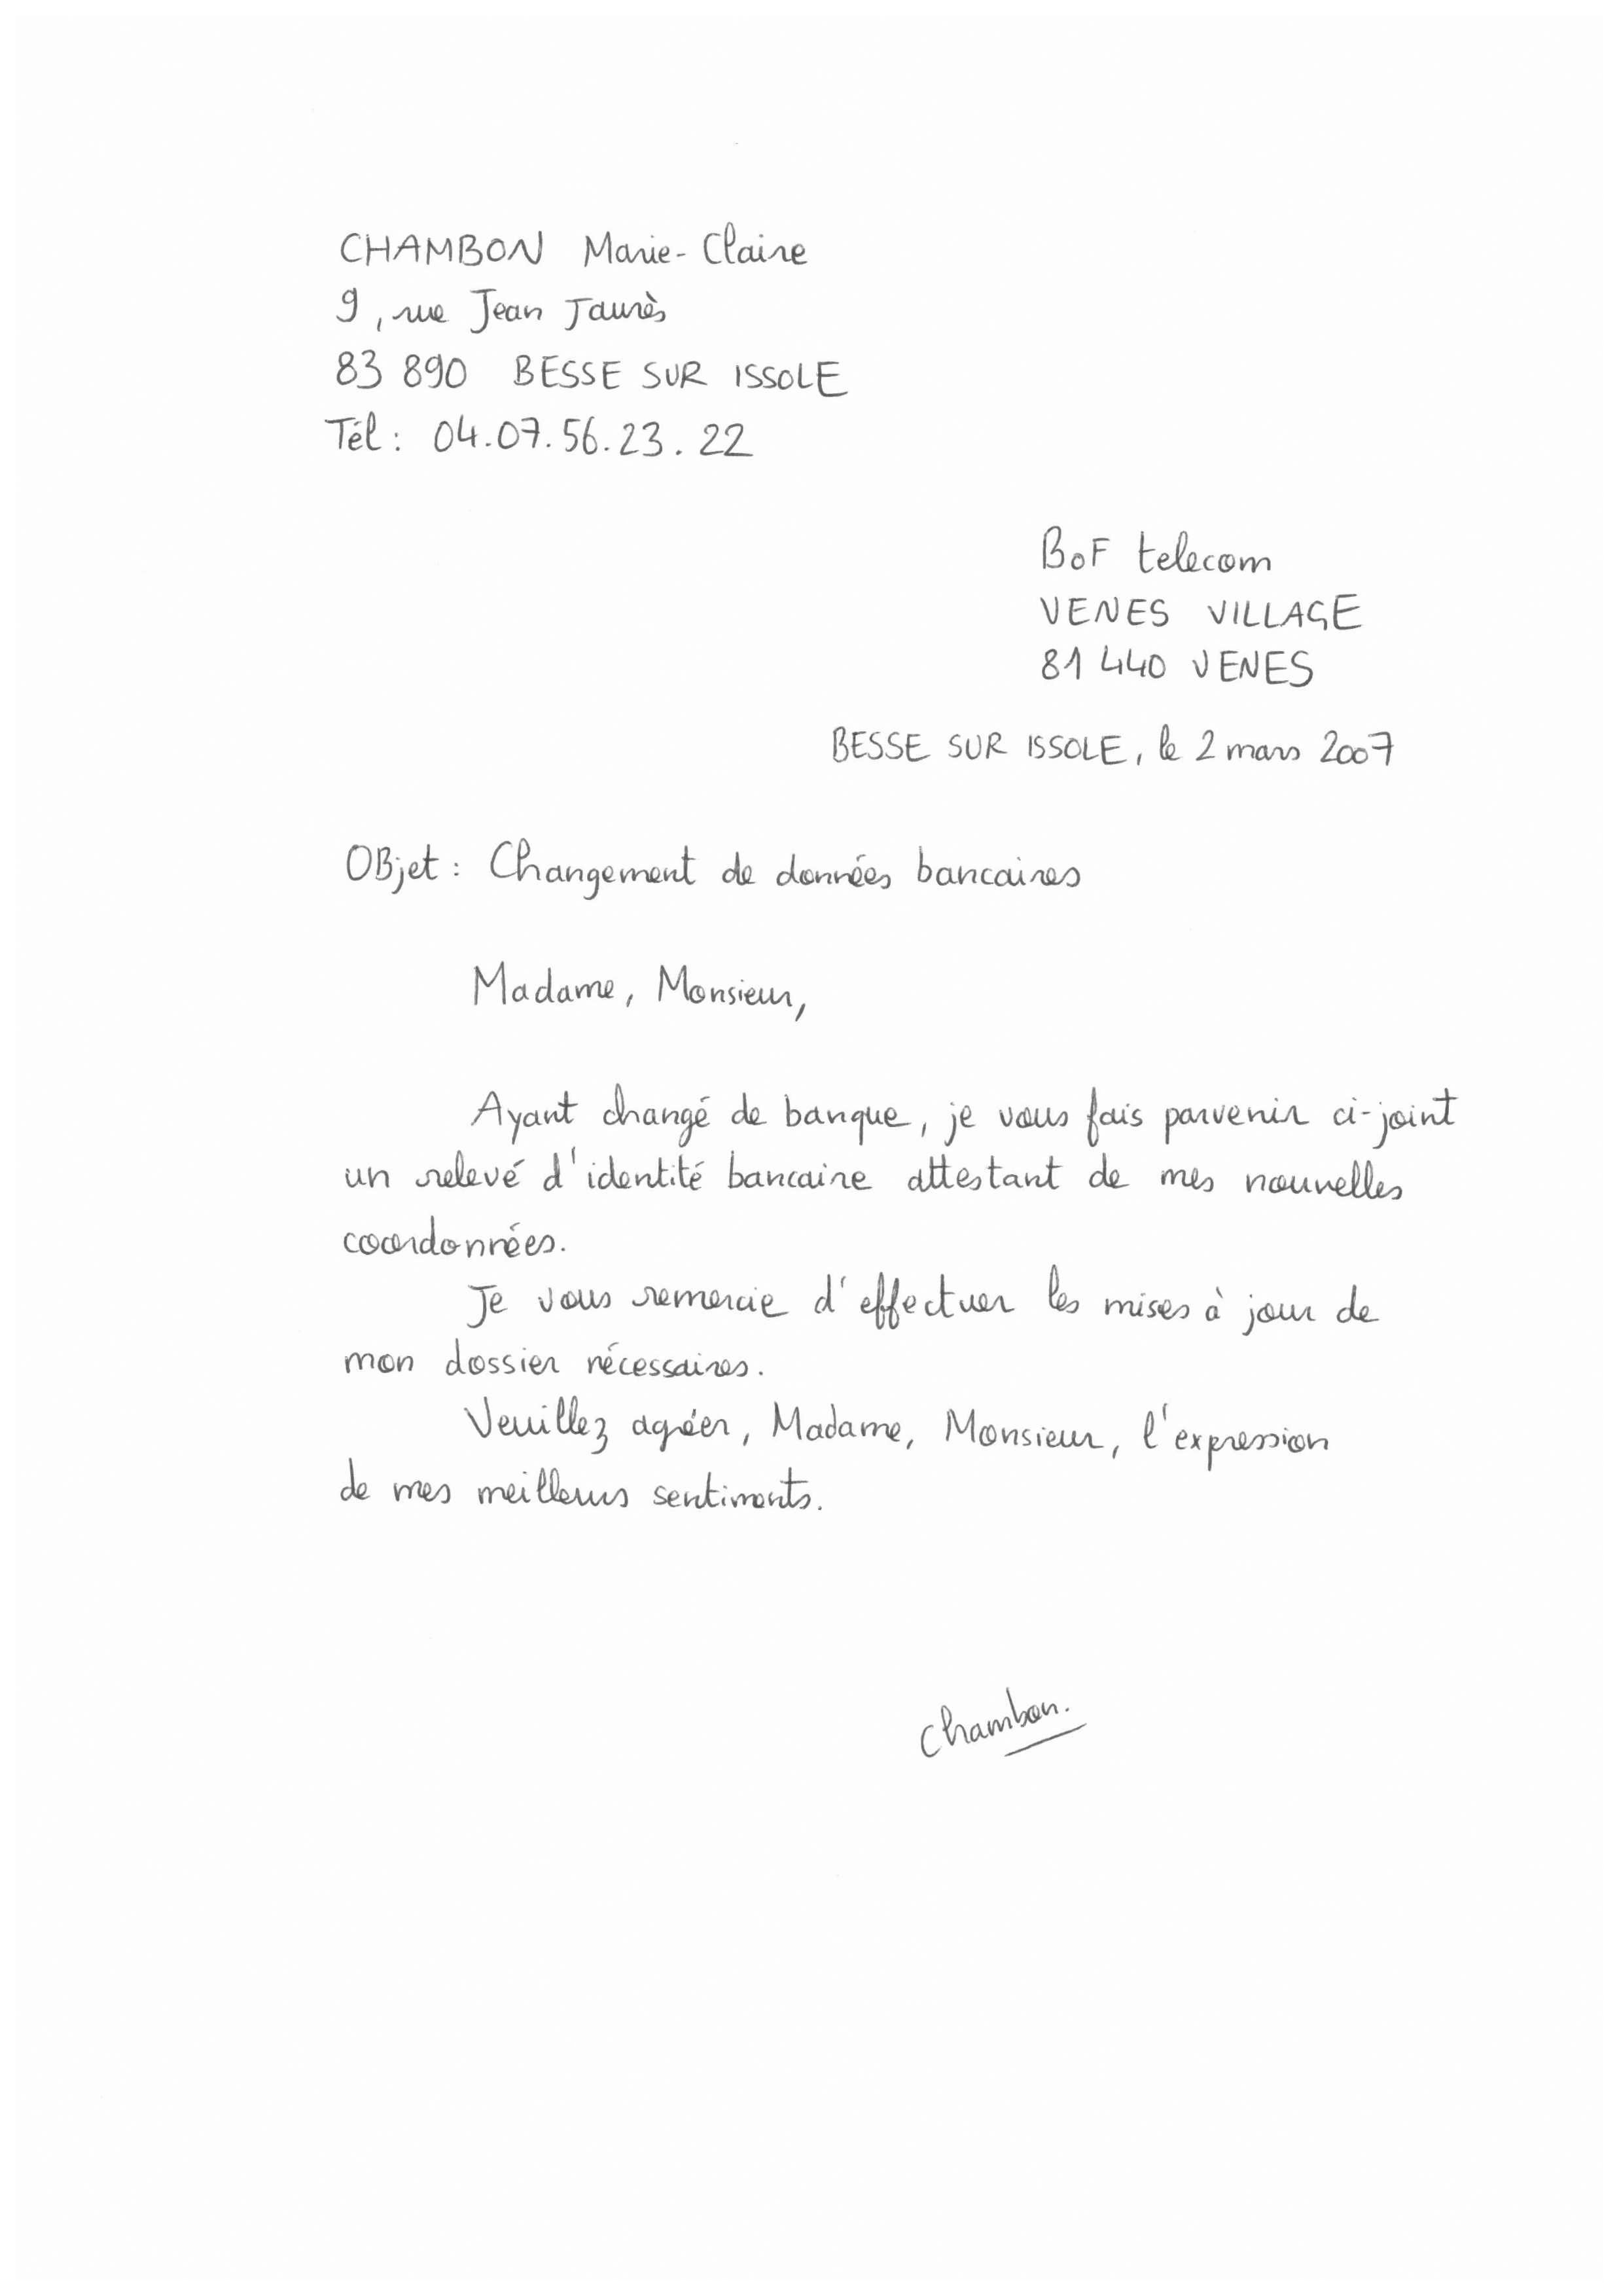 CHAMBON Marie-Claire
9, rue Jean Jaurès
83 890 BESSE SUR ISSOLE
Tél : 04.07.56.23.22
BoF telecom
VENES VILLAGE
81 440 VENES
BESSE SUR ISSOLE, le 2 mars 2007
OBjet : Changement de données bancaires
Madame, Monsieur,
Ayant changé de banque, je vous fais parvenir ci-joint
un relevé d'identité bancaire attestant de mes nouvelles
coordonnées.
Je vous remercie d'effectuer les mises à jour de
mon dossier nécessaires.
Veuillez agréer, Madame, Monsieur, l'expression
de mes meilleurs sentiments.
Chambon.